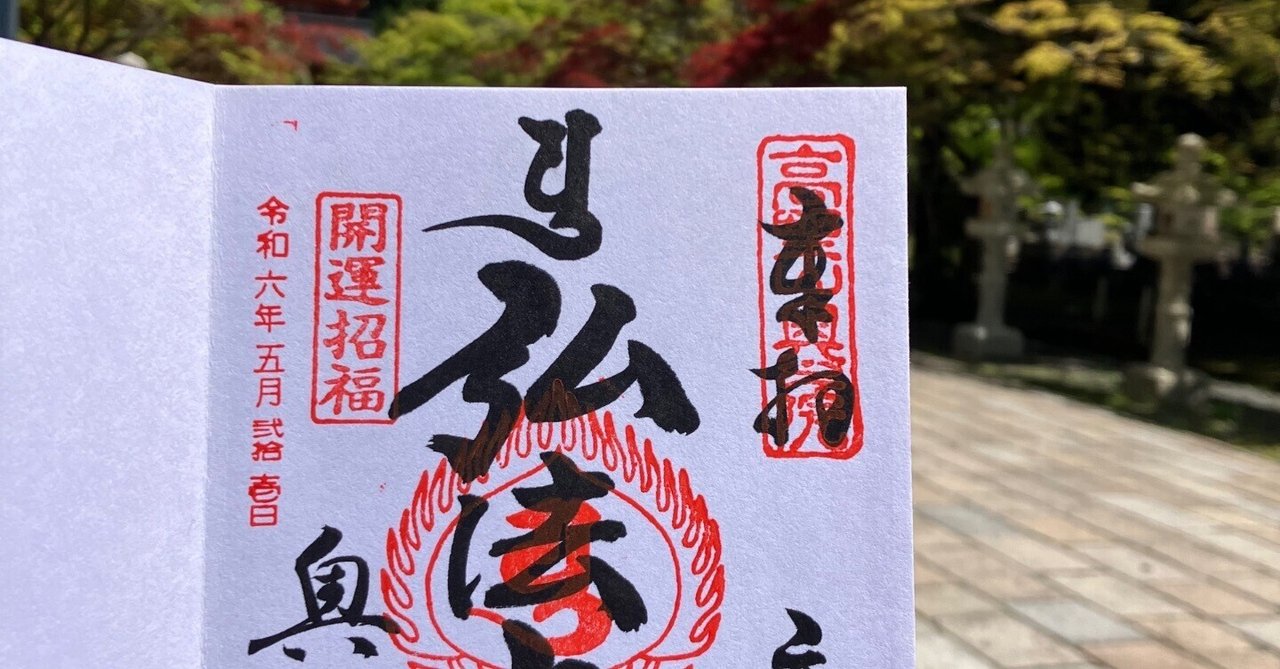 高野山奥院
奉拝
弘法
奥
開運招福
令和六年五月弐拾壱日